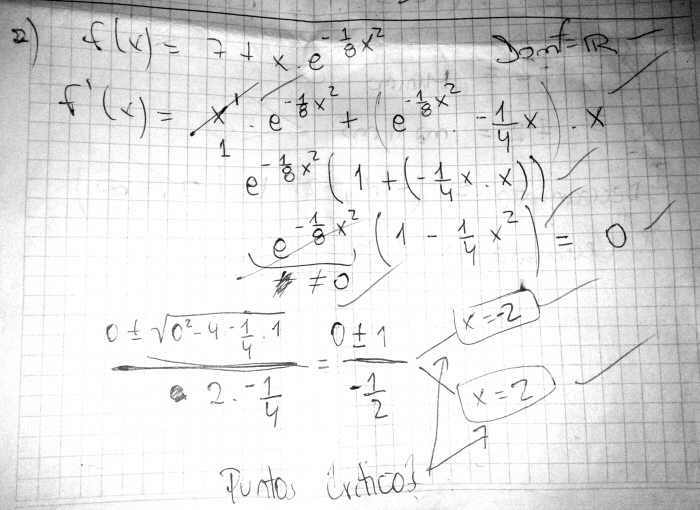 2) f(x) = 7 + x · e^{-1/8 x^2} Domf = ℝ
f'(x) = x' · e^{-1/8 x^2} + (e^{-1/8 x^2} · -1/4 x) · x
1
e^{-1/8 x^2} (1 + (-1/4 x · x))
e^{-1/8 x^2} (1 - 1/4 x^2) = 0
≠ 0
0 ± √(0^2 - 4 · -1/4 · 1) / 2 · -1/4 = 0 ± 1 / -1/2
x = -2
x = 2
Puntos Criticos